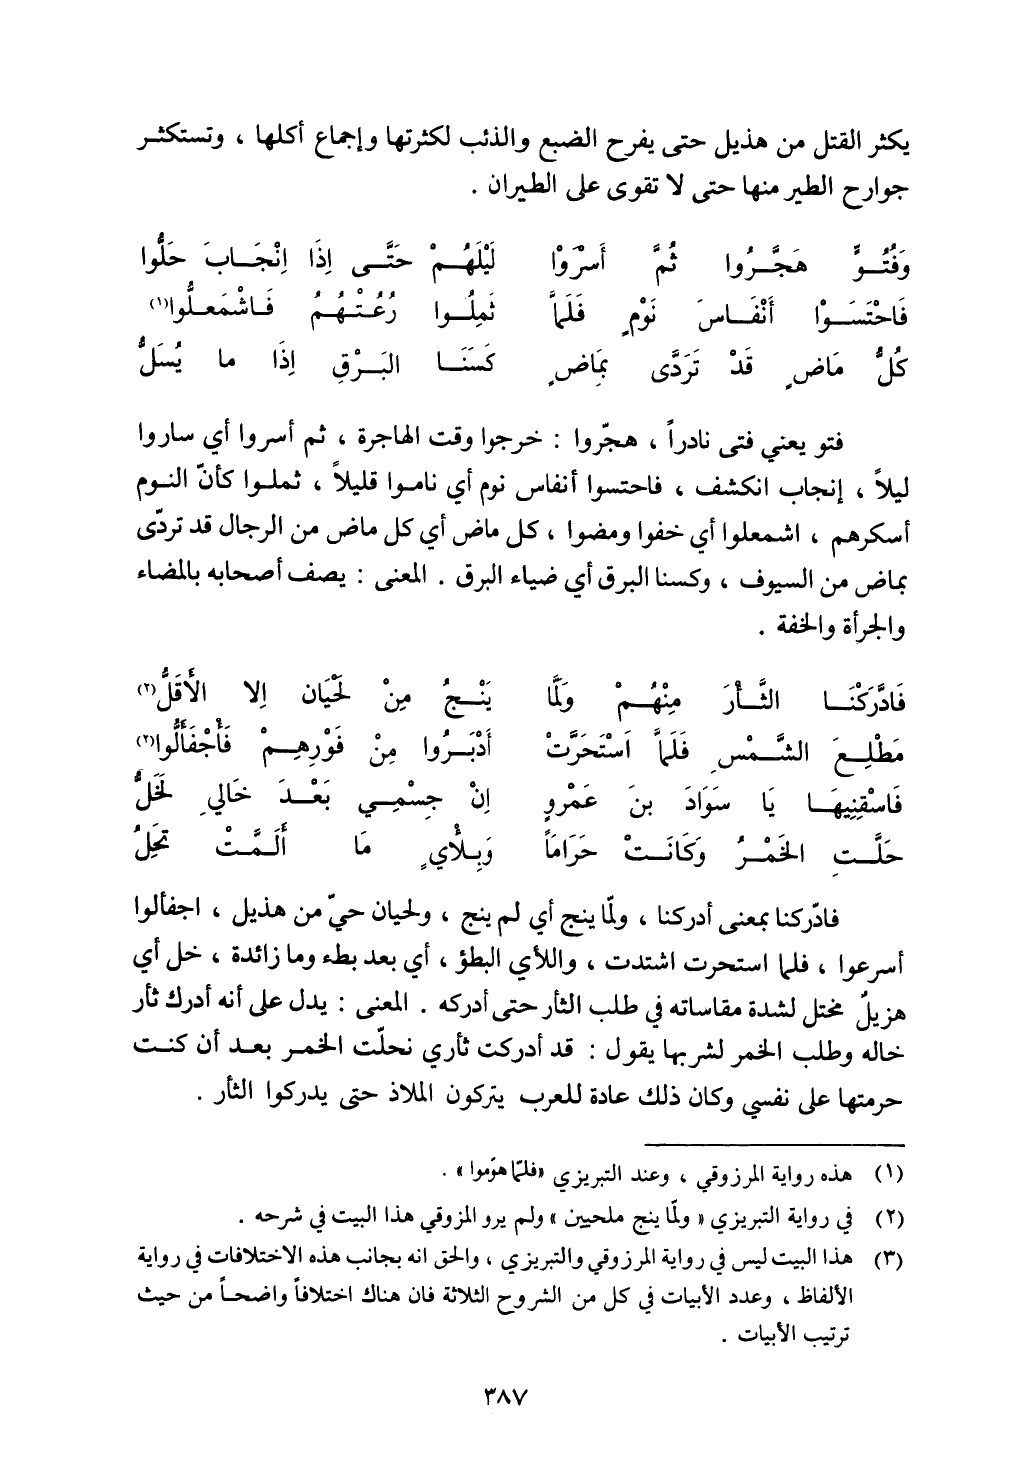 يكثر القتل من هذيل حتى يفرح الضبع والذئب لكثرتها وإجماع أكلها ، وتستكثر
جوارح الطير منها حتى لا تقوى على الطيران .
وَفُتُوٍّ هَجَّرُوا ثُمَّ أَسْرَوْا لَيْلَهُمْ حَتَّى إِذَا اِنْجَابَ حَلُّوا
فَاحْتَسَوْا أَنْفَاسَ نَوْمٍ فَلَمَّا ثَمِلُوا رُعْتُهُمُ فَاشْمَعلُّوا(١)
كُلُّ مَاضٍ قَدْ تَرَدَّى بِمَاضٍ كَسَنَا البَرْقِ إِذَا ما يُسَلُّ
فتو يعني فتى نادراً ، هجّروا : خرجوا وقت الهاجرة ، ثم أسروا أي ساروا
ليلاً ، إنجاب انكشف ، فاحتسوا أنفاس نوم أي ناموا قليلاً ، ثملوا كأنّ النوم
أسكرهم ، اشمعلوا أي خفوا ومضوا ، كل ماض أي كل ماض من الرجال قد تردّى
بماض من السيوف ، وكسنا البرق أي ضياء البرق . المعنى : يصف أصحابه بالمضاء
والجرأة والخفة .
فَادَّرَكْنَا الثَّأرَ مِنْهُمْ وَلَمَّا يَنْجُ مِنْ لَحْيَان اِلا الأَقَلُّ(٢)
مَطْلِعَ الشَّمْسِ فَلَمَّا اَسْتَحَرَّتْ أَدْبَرُوا مِنْ فَوْرِهِمْ فَأجْفَأَلُّوا(٣)
فَاسْقِنِيهَا يَا سَوَادَ بنَ عَمْروٍ اِنْ جِسْمِي بَعْدَ خَالي لَخَلُّ
حَلَّتِ الخَمْرُ وَكَانَتْ حَرَامَاً وَبِلأيٍ مَا أَلَمَّتْ تحَِلُ
فادّركنا بمعنى أدركنا ، ولمّا ينج أي لم ينج ، ولحيان حيّ من هذيل ، اجفألوا
أسرعوا ، فلما استحرت اشتدت ، واللأي البطؤ ، أي بعد بطء وما زائدة ، خل أي
هزيلٌ مختل لشدة مقاساته في طلب الثأر حتى أدركه . المعنى : يدل على أنه أدرك ثأر
خاله وطلب الخمر لشربها يقول : قد أدركت ثأري نحلّت الخمر بعد أن كنت
حرمتها على نفسي وكان ذلك عادة للعرب يتركون الملاذ حتى يدركوا الثأر .
(١) هذه رواية المرزوقي ، وعند التبريزي «فلمّا هوّموا» .
(٢) في رواية التبريزي « ولمّا ينج ملحيين » ولم يرو المزوقي هذا البيت في شرحه .
(٣) هذا البيت ليس في رواية المرزوقي والتبريزي ، والحق انه بجانب هذه الاختلافات في رواية
الألفاظ ، وعدد الأبيات في كل من الشروح الثلاثة فان هناك اختلافاً واضحاً من حيث
ترتيب الأبيات .
٣٨٧